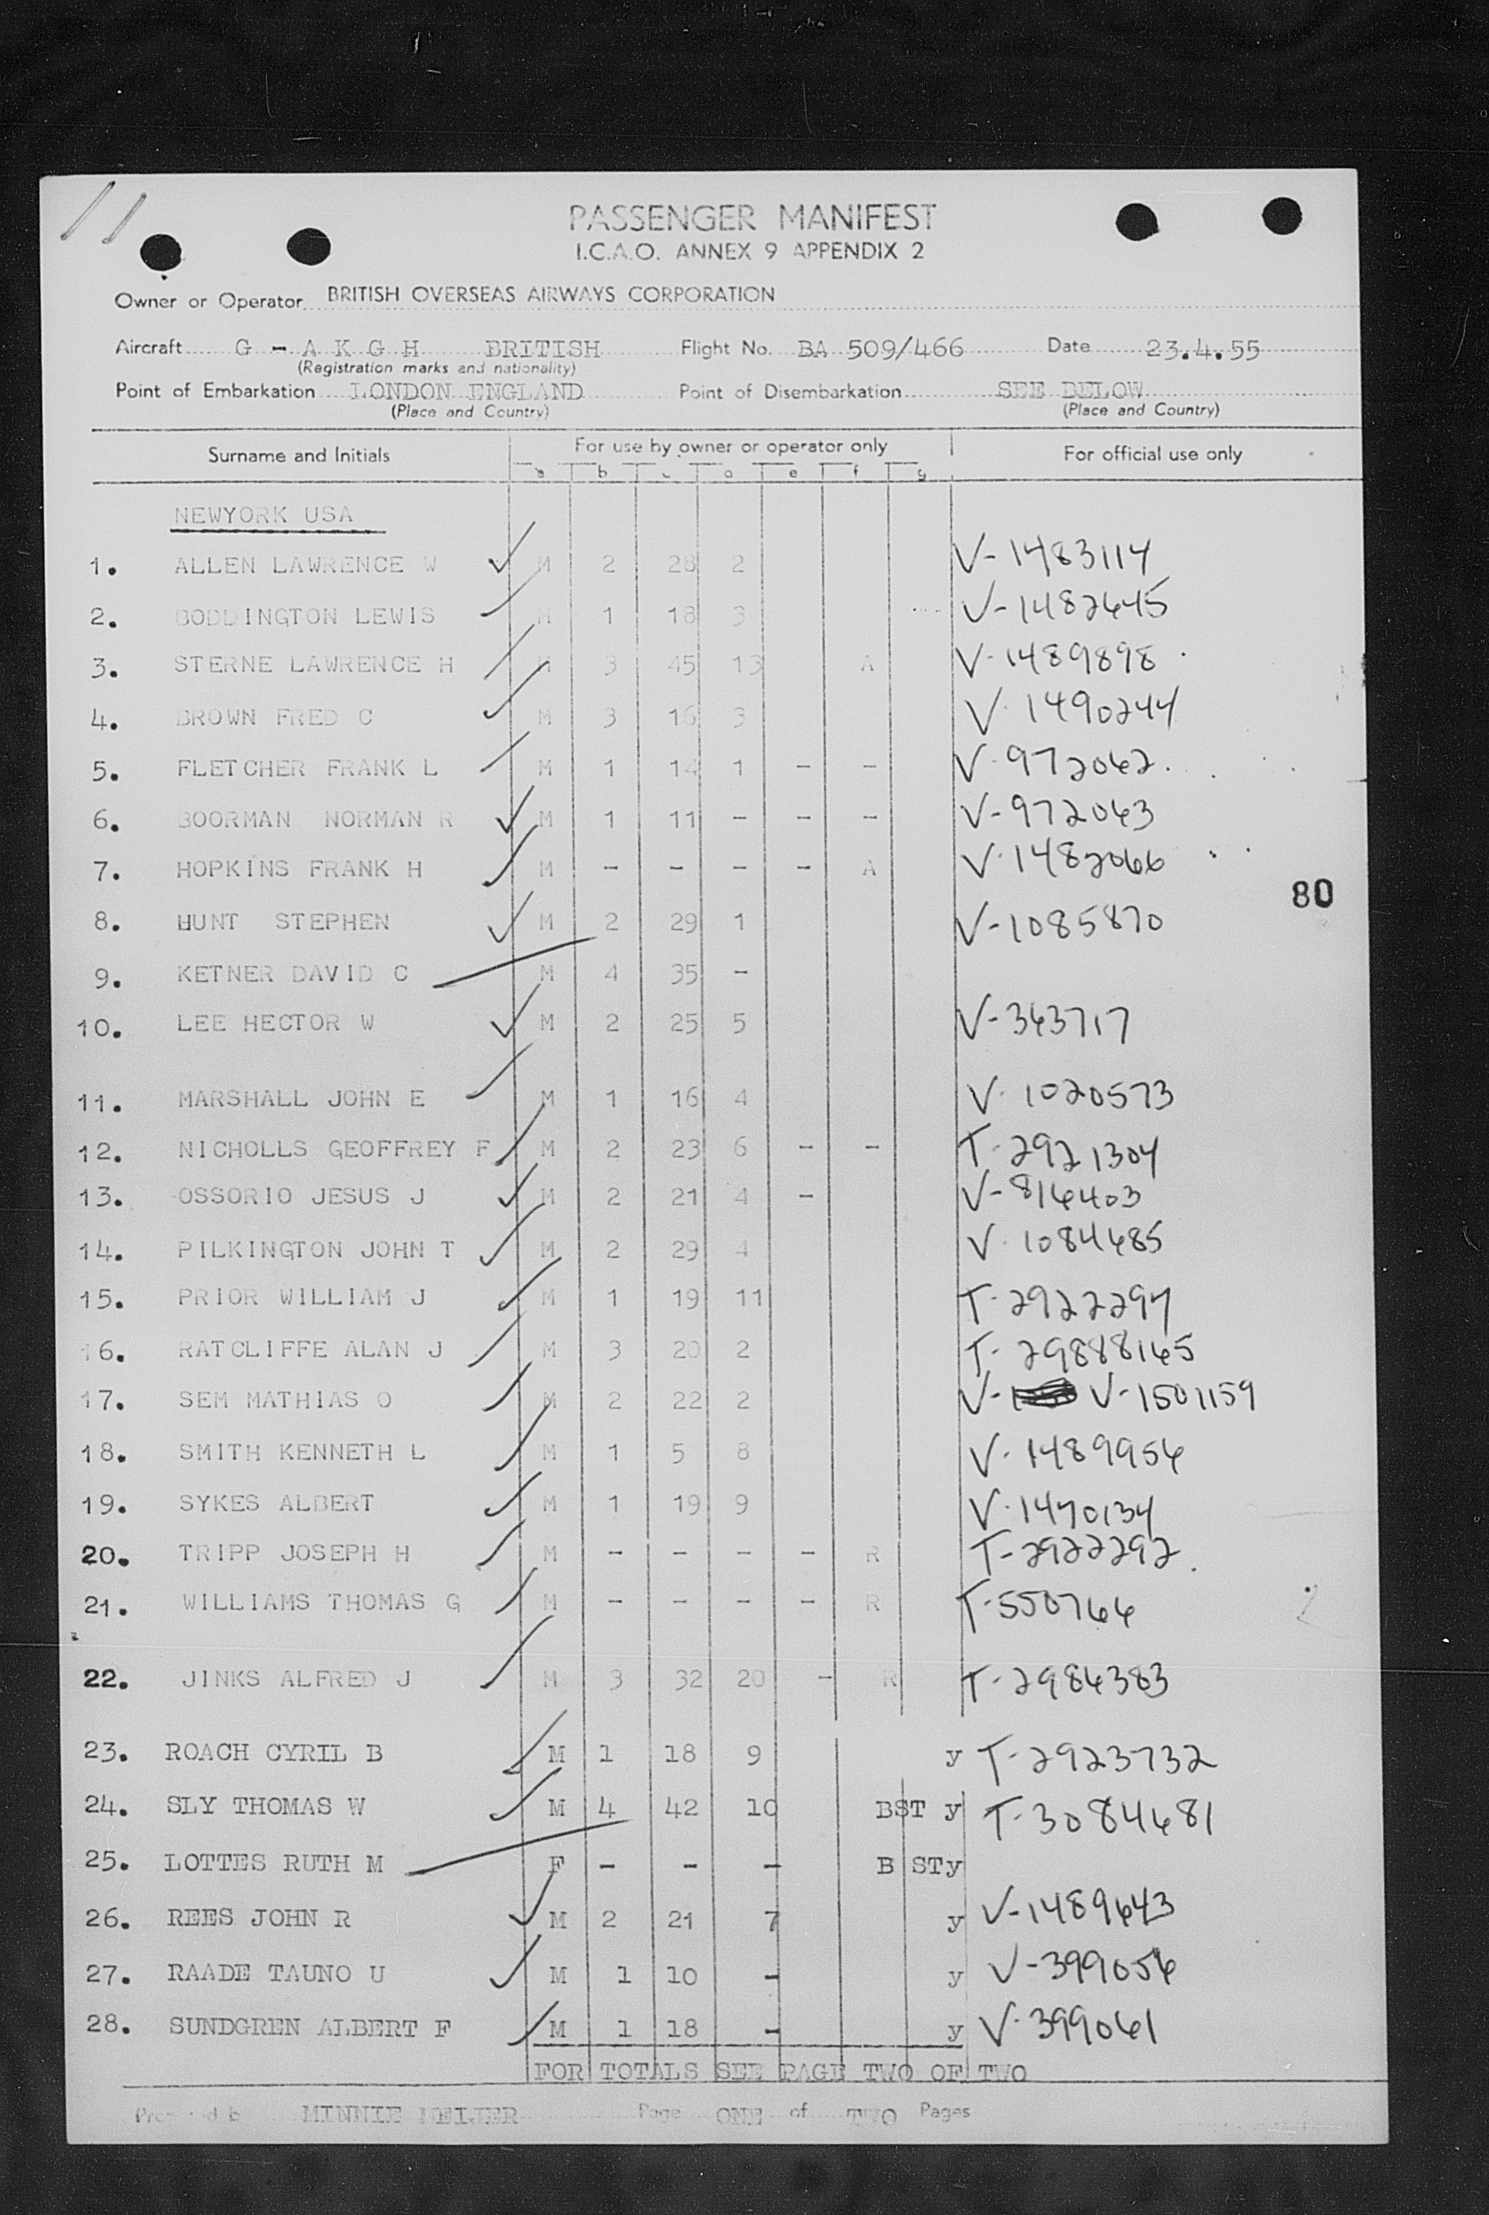 11
PASSENGER MANIFEST
I.C.A.O. ANNEX 9 APPENDIX 2
Owner or Operator BRITISH OVERSEAS AIRWAYS CORPORATION
Aircraft G - A K G H BRITISH Flight No. BA 509/466 Date 23.4.55
(Registration marks and nationality)
Point of Embarkation LONDON ENGLAND Point of Disembarkation SEE BELOW
(Place and Country) (Place and Country)
Surname and Initials For use by owner or operator only For official use only
a b c d e f g
NEWYORK USA
1. ALLEN LAWRENCE W M 2 28 2 V-1483114
2. BODDINGTON LEWIS M 1 18 3 V-1482645
3. STERNE LAWRENCE H M 3 45 13 A V-1489898
4. BROWN FRED C M 3 16 3 V-1490244
5. FLETCHER FRANK L M 1 14 1 - - V-972062
6. BOORMAN NORMAN R M 1 11 - - - V-972063
7. HOPKINS FRANK H M - - - - A V-1482066
80
8. HUNT STEPHEN M 2 29 1 V-1085870
9. KETNER DAVID C M 4 35 -
10. LEE HECTOR W M 2 25 5 V-363717
11. MARSHALL JOHN E M 1 16 4 V-1020573
12. NICHOLLS GEOFFREY F M 2 23 6 - - T-2921304
13. OSSORIO JESUS J M 2 21 4 - V-816403
14. PILKINGTON JOHN T M 2 29 4 V-1084685
15. PRIOR WILLIAM J M 1 19 11 T-2922294
16. RATCLIFFE ALAN J M 3 20 2 T-29888165
17. SEM MATHIAS O M 2 22 2 V-1 V-1501159
18. SMITH KENNETH L M 1 5 8 V-1489956
19. SYKES ALBERT M 1 19 9 V-1470134
20. TRIPP JOSEPH H M - - - - R T-2922292
21. WILLIAMS THOMAS G M - - - - R T-550766
22. JINKS ALFRED J M 3 32 20 - R T-2986383
23. ROACH CYRIL B M 1 18 9 y T-2923732
24. SLY THOMAS W M 4 42 10 BST y T-3084681
25. LOTTES RUTH M F - - - B STy
26. REES JOHN R M 2 21 7 y V-1489643
27. RAADE TAUNO U M 1 10 - y V-399056
28. SUNDGREN ALBERT F M 1 18 - y V-399061
FOR TOTALS SEE PAGE TWO OF TWO
Prepared by MINNIE Page ONE of TWO Pages